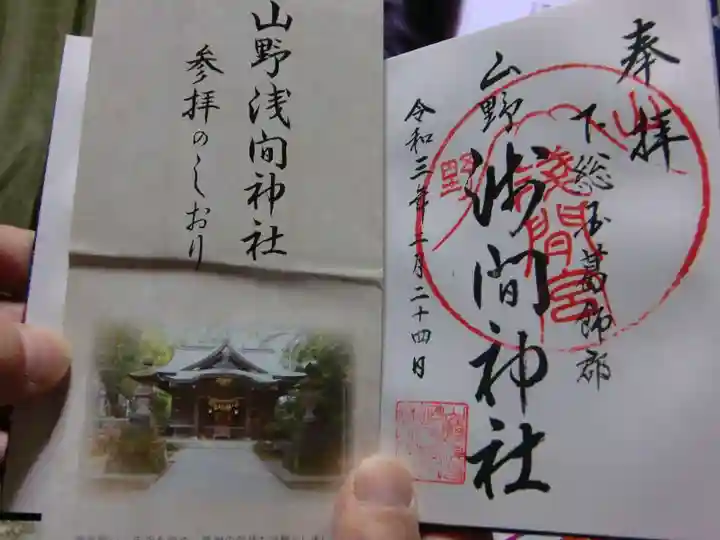 山野浅間神社
参拝のしおり
奉拝
下総国葛飾郡
山野
浅間神社
令和三年二月二十四日
山野
浅間宮